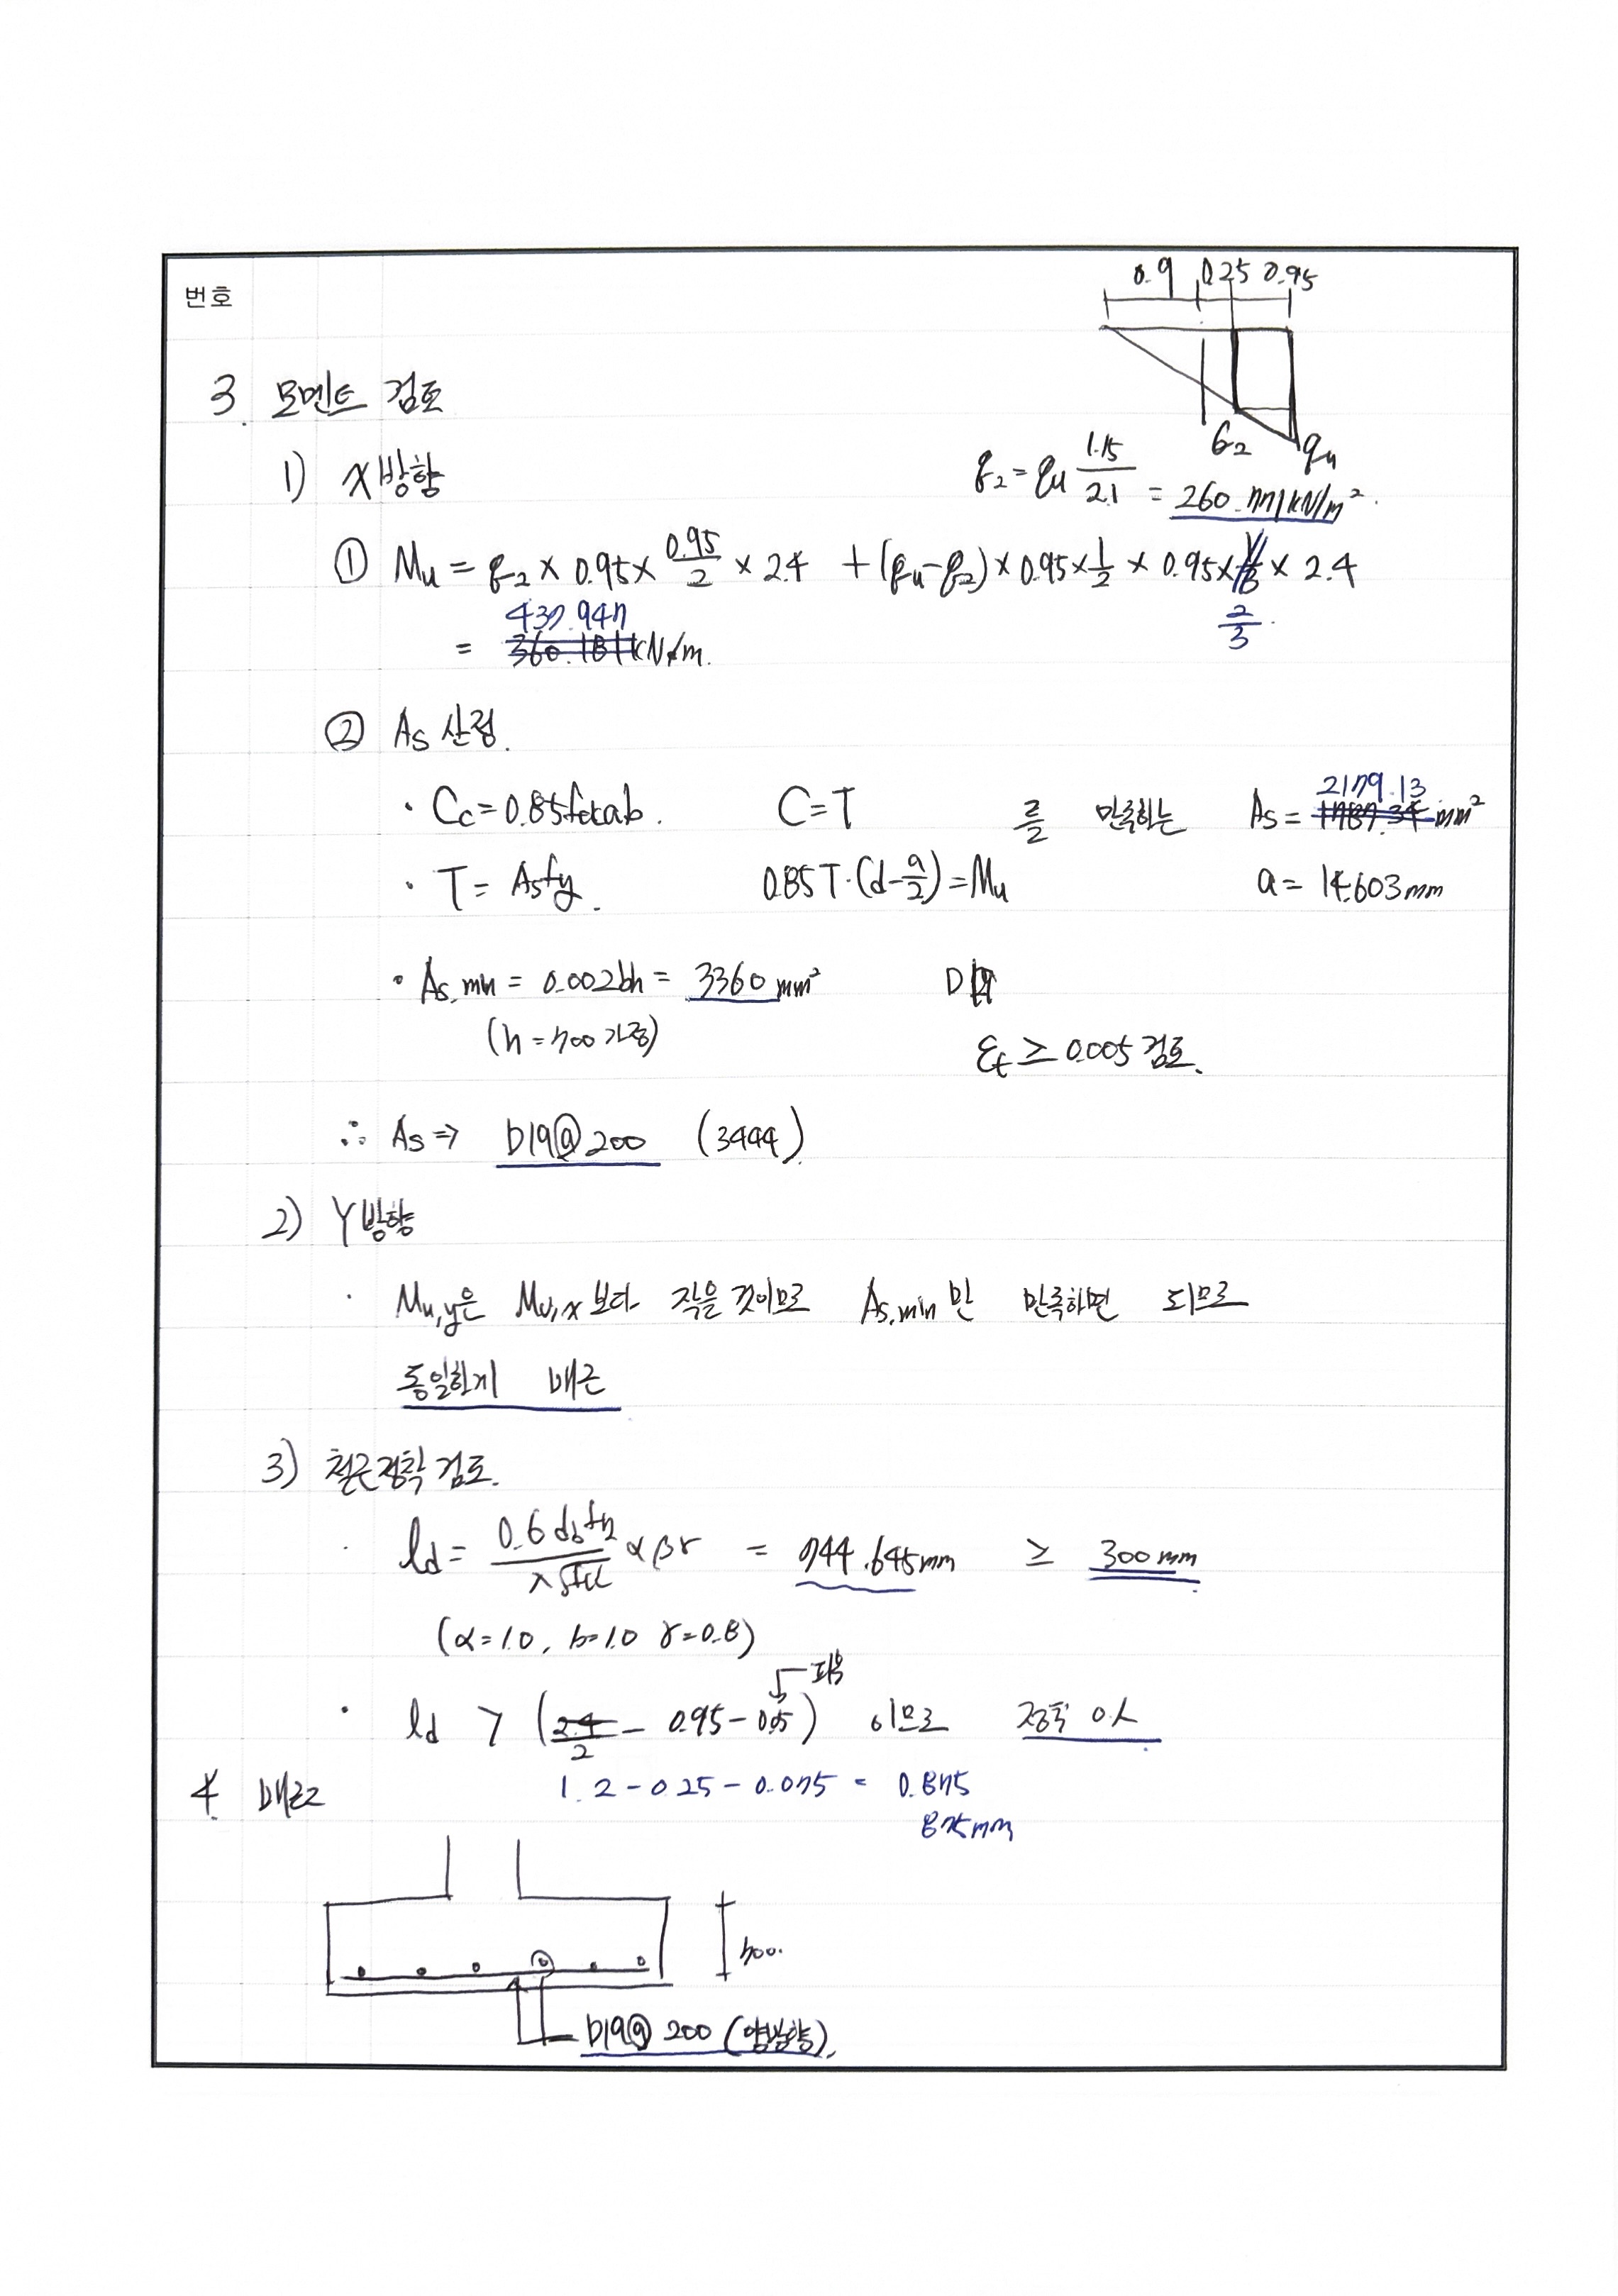 번호
0.9 0.25 0.95
3. 모멘트 검토
σ₂ qu
1) X방향
q₂ = qu 1.15/2.1 = 260.771kN/m².
① Mu = q₂ × 0.95 × 0.95/2 × 2.4 + (qu-q₂) × 0.95 × 1/2 × 0.95 × 2/3 × 2.4
= 437.947 kN·m.
② As 산정.
· Cc = 0.85fckab. C=T 를 만족하는 As = 2179.13 mm²
· T = Asfy. 0.85T·(d-a/2) = Mu a = 14.603mm
· As,min = 0.002bh = 3360mm²
(h = 700 가정) εt ≥ 0.005 검토.
∴ As ⇒ D19@200 (3444)
2) Y방향
· Mu,y은 Mu,x 보다 작을것이므로 As,min만 만족하면 되므로
동일하게 배근
3) 철근정착 검토.
· ld = 0.6dbfy/λ√fck αβγ = 744.645mm ≥ 300mm
(α=1.0, b=1.0 γ=0.8)
피복
· ld > (2.4/2 - 0.95 - 0.05) 이므로 정착 O.
1.2 - 0.25 - 0.075 = 0.875
875mm
4. 배근
700.
D19@200 (양방향).